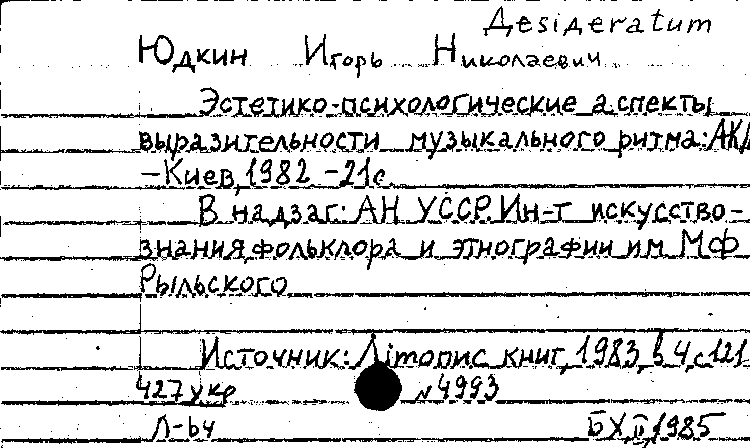 Дesiдeratum
Юдкин Игорь Николаевич
Эстетико-психологические аспекты
выразительности музыкального ритма: АКД
-Киев, 1982 -21с.
В надзаг: АН УССР. Ин-т искусство-
знания, фольклора и этнографии им МФ
Рыльского
Источник: Літопис книг, 1983, в 4, с121
427 укр №4993
Л-ь4 БХ, II, 1985